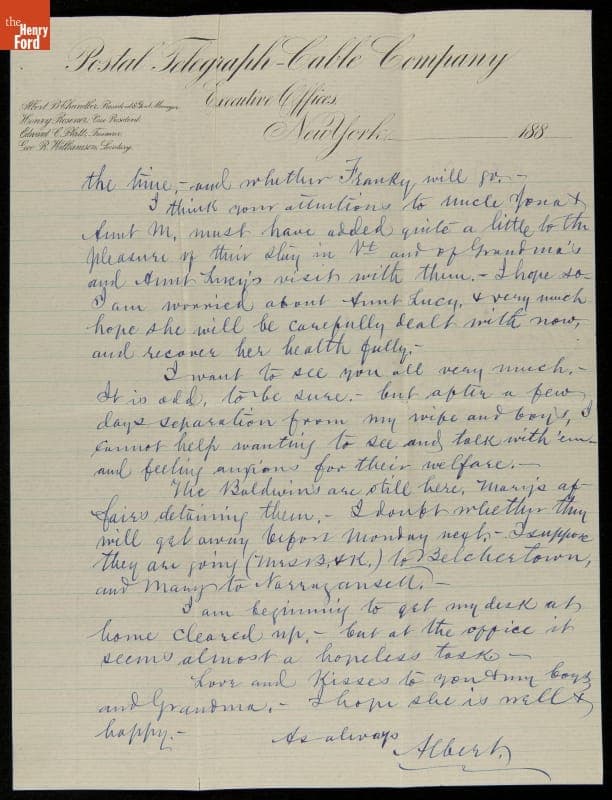 the
Henry
Ford
Postal Telegraph-Cable Company
Executive Offices,
New York, 188
Albert B. Chandler, President & Genl. Manager
Henry Rosener, Vice President
Edward C. Platt, Treasurer
Geo. R. Williamson, Secretary
the time,- and whether Franky will go.-
I think your attentions to Uncle &
Aunt M, must have added quite a little to the
pleasure of their stay in Vt and of Grandma's
and Aunt Lucy's visit with them.- I hope so-
I am worried about Aunt Lucy, & very much
hope she will be carefully dealt with now,
and recover her health fully.-
I want to see you all very much.-
It is odd, to be sure.- but after a few
days separation from my wife and boys, I
cannot help wanting to see and talk with 'em-
and feeling anxious for their welfare.-
The Baldwins are still here, Mary's af-
fairs detaining them.- I doubt whether they
will get away before Monday next.- I suppose
they are going (Mrs B. & K.) to Belchertown,
and Mary to Narragansett.-
I am beginning to get my desk at
home cleared up,- but at the office it
seems almost a hopeless task-
Love and Kisses to you & my boys
and Grandma.- I hope she is well &
happy.-
As always
Albert.